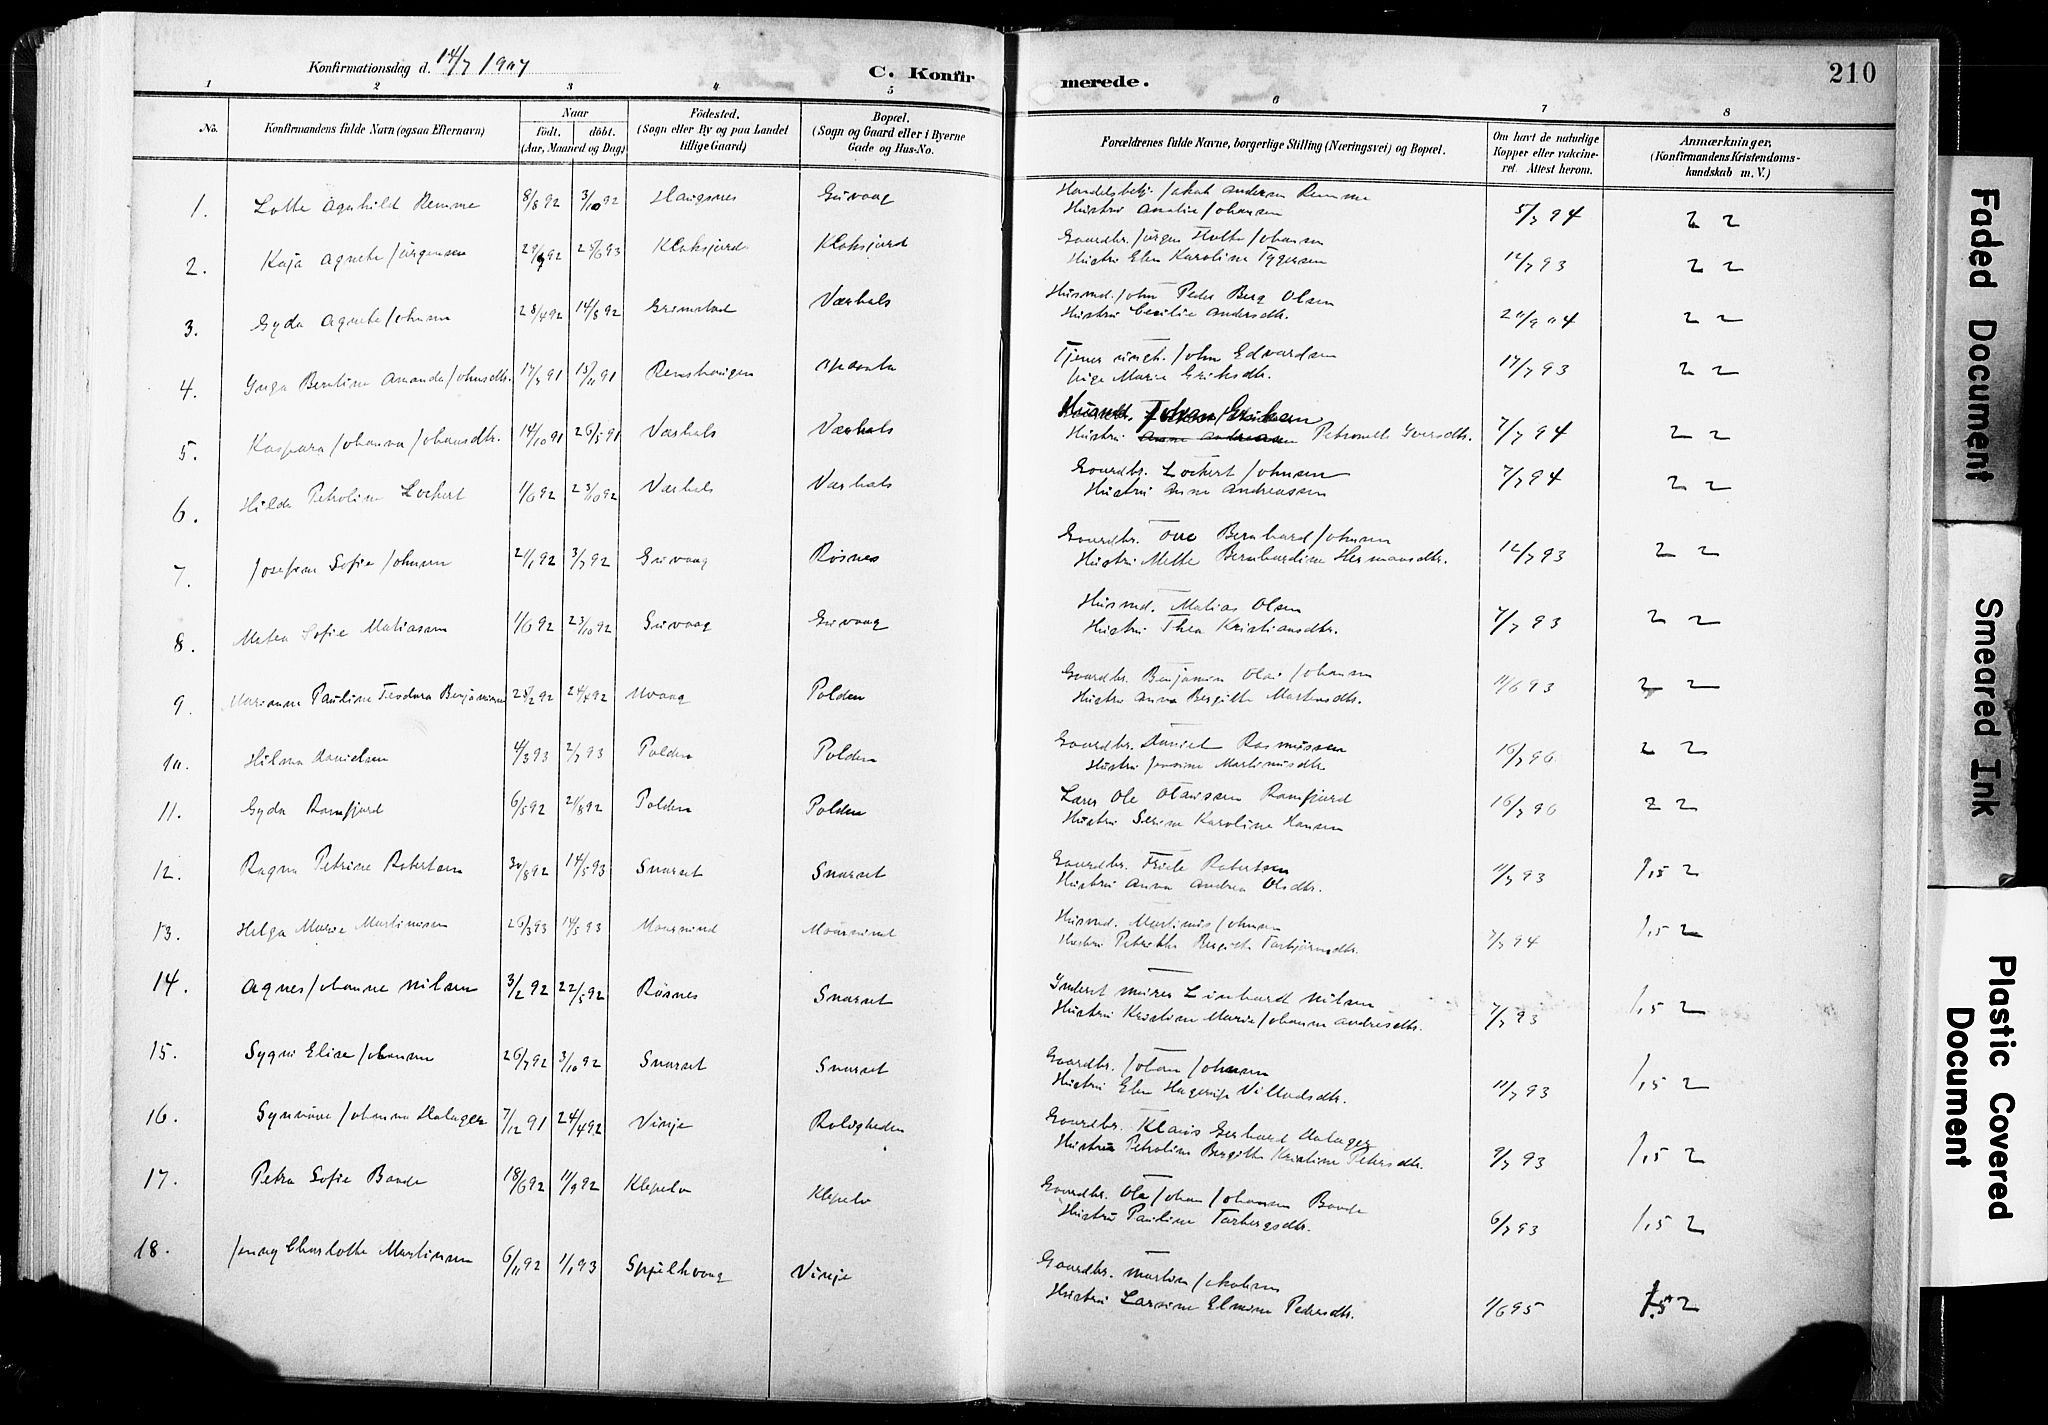 Konfirmationsdag d. 14/7 1907
C. Konfirmerede.
210
1 2 3 4 5 6 7 8
No.
Konfirmandens fulde Navn (ogsaa Efternavn)
Naar
födt. döbt.
(Aar, Maaned og Dag)
Födested.
(Sogn eller By og paa Landet
tillige Gaard)
Bopæl.
(Sogn og Gaard eller i Byerne
Gade og Hus-No.
Forældrenes fulde Navne, borgerlige Stilling (Næringsvei) og Bopæl.
Om havt de naturlige
Kopper eller vakcine-
ret. Attest herom.
Anmærkninger,
(Konfirmandens Kristendoms-
kundskab m. V.)
1. Lotte Agnhild Remme 8/8 92 3/10 92 Haugsnes Guvaag
Handelsbetj. Jakob Andersen Remme
Hustru Amalie Johansen 5/7 94 2 2
2. Kaja Agnete Jørgensen Kloksjord Kloksjord
Gaardbr. Jørgen Holte Johansen
Hustru Elen Karoline Tygersen 12/7 93 2 2
3. Gyda Agnete Johnsen 28/4 92 14/8 92 Grimstad Værhals
Husmd. John Peder Berg Olsen
Hustru Cecilie Andersdtr. 2 2
4. Inga Bentine Amanda Johnsdtr. 17/7 91 15/11 91 Renshaugen
Tjener John Edvardsen
Pige Marie Eriksdtr. 17/7 93 2 2
5. Kaspara Johanna Johansdtr. 14/10 91 26/5 91 Værhals Værhals
Husmd. Johan Eriksen
Hustru Petronelle Iversdtr. 7/7 94 2 2
6. Hilda Petroline Lockert 1/6 92 23/10 92 Værhals Værhals
Gaardbr. Lockert Johnsen
Hustru Anne Andreassen 7/7 94 2 2
7. Josefine Sofie Johnsen 21/1 92 3/7 92 Guvaag Røsnes
Gaardbr. Tove Bernhard Johnsen
Hustru Mette Bernhardine Hermansdtr. 12/7 93 2 2
8. Metea Sofie Matiassen 1/6 92 23/10 92 Guvaag Guvaag
Husmd. Matias Olsen
Hustru Thea Kristiansdtr. 7/7 93 2 2
9. Marianne Pauline Teodora Benjaminsen 28/2 92 24/4 92 Uvaag Polden
Gaardbr. Benjamin Olai Johansen
Hustru Anna Bergitte Martensdtr. 11/6 93 2 2
10. Hilma Danielsen 4/3 93 2/7 93 Polden Polden
Gaardbr. Daniel Rasmussen
Hustru Jensine Martinusdtr. 16/7 96 2 2
11. Gyda Ramfjord 6/5 92 21/8 92 Polden Polden
Lars Ole Olaissen Ramfjord
Hustru Serine Karoline Hansen 16/7 96 2 2
12. Ragna Petrine Robertsen 30/8 92 14/5 93 Snarset Snarset
Gaardbr. Robertsen
Hustru Anna Andrea Olsdtr. 11/7 93 1,5 2
13. Helga Marie Martinussen 26/3 93 14/5 93 Maurnind Maurnind
Husmd. Martinus Johnsen
Hustru Petrikke Bergitte Torbjørnsdtr. 7/7 94 1,5 2
14. Agnes Johanne Nilsen 3/2 92 22/5 92 Røsnes Snarset
Inderst Murer Linhard Nilsen
Hustru Kristine Marie Johanne Andreasdtr. 7/7 93 1,5 2
15. Sygni Elise Johansen 26/7 92 3/10 92 Snarset Snarset
Gaardbr. Johan Johnsen
Hustru Elen Villadsdtr. 11/7 93 1,5 2
16. Synnøve Johanna Dalager 7/12 91 24/4 92 Vinje Roligheden
Gaardbr. Klaus Gerhard Dalager
Hustru Petroline Bergitte Kristine Petersdtr. 9/7 93 1,5 2
17. Petra Sofie Baade 18/6 92 11/9 92 Klepelv Klepelv
Gaardbr. Ole Johan Johansen Baade
Hustru Pauline Torbergsdtr. 6/7 93 1,5 2
18. Jenny Charlotte Martinsen 6/11 92 1/1 93 Spjelkvaag Vinje
Gaardbr. Martin Jakobsen
Hustru Larsine Elmine Pedersdtr. 1/6 95 1,5 2
Faded Document
Smeared Ink
Plastic Covered
Document